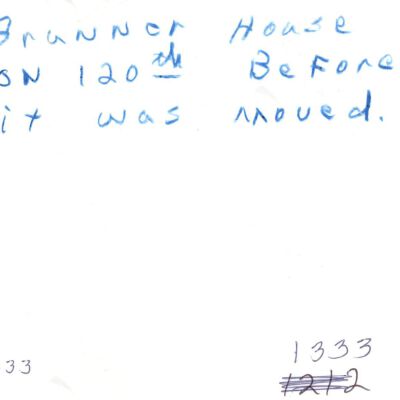 Brunner House
on 120th Before
it was moved.
1333
33
1212